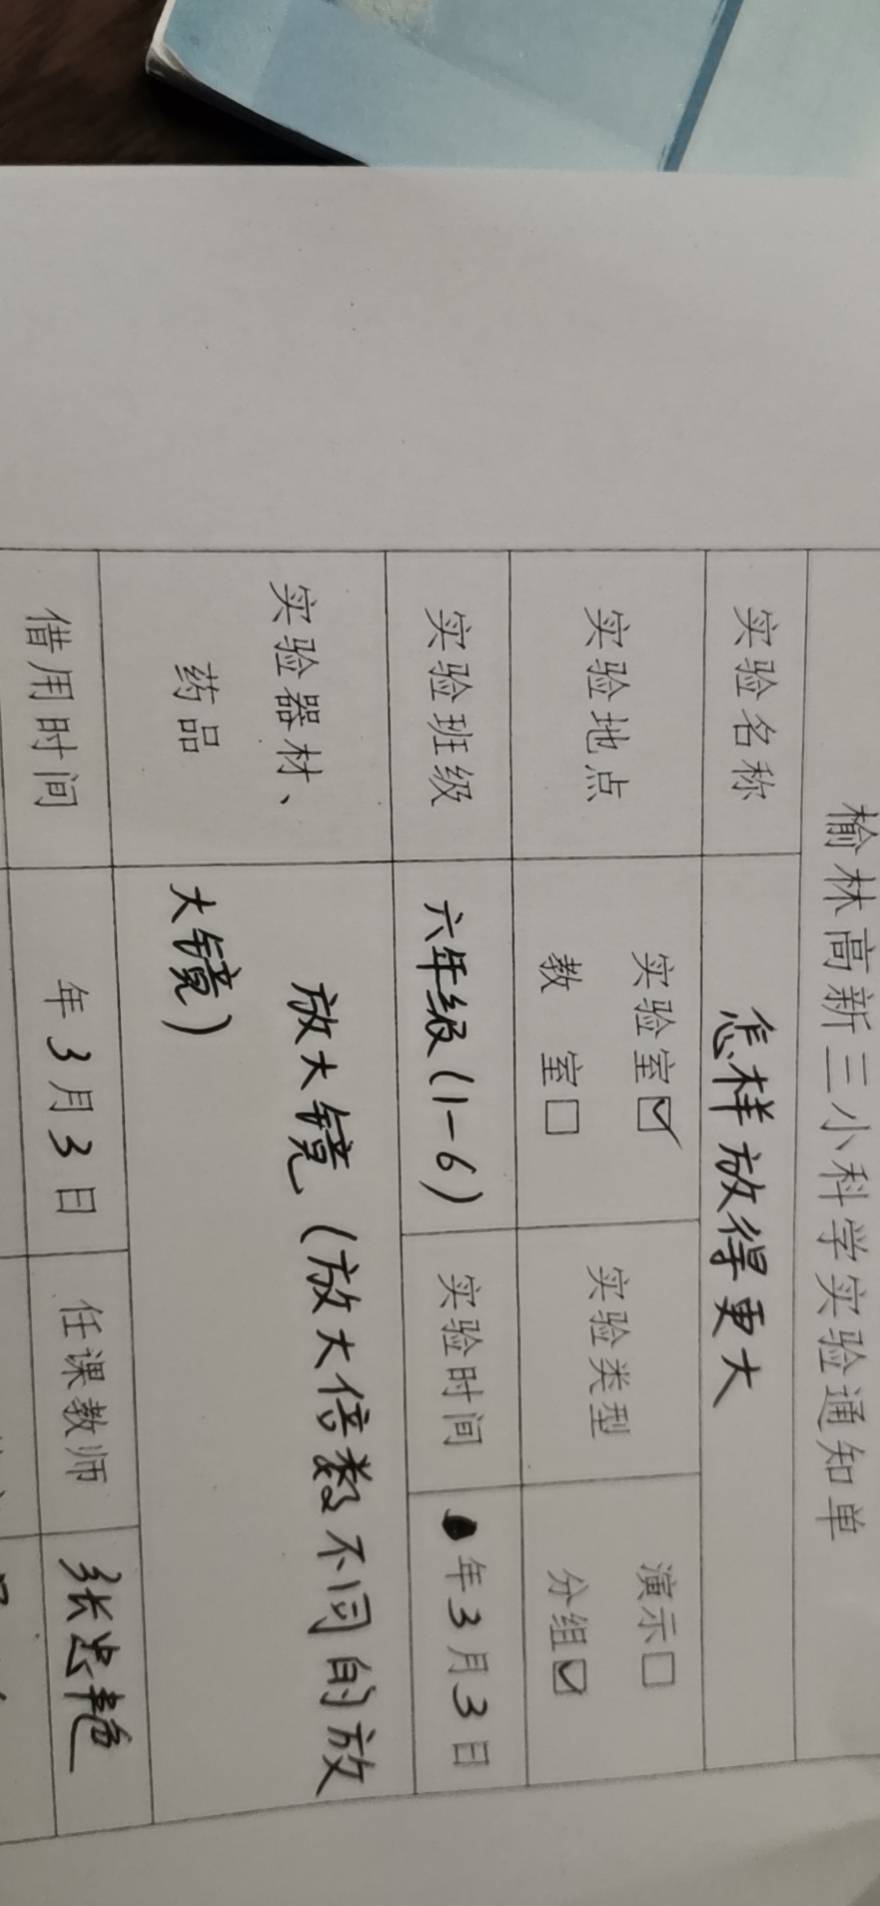 榆林高新三小科学实验通知单
实验名称 怎样放得更大
实验地点 实验室☑ 实验类型 演示□
教 室□ 分组☑
实验班级 六年级(1-6) 实验时间 年3月3日
实验器材、 放大镜(放大倍数不同的放
药品 大镜)
借用时间 年3月3日 任课教师 张忠艳